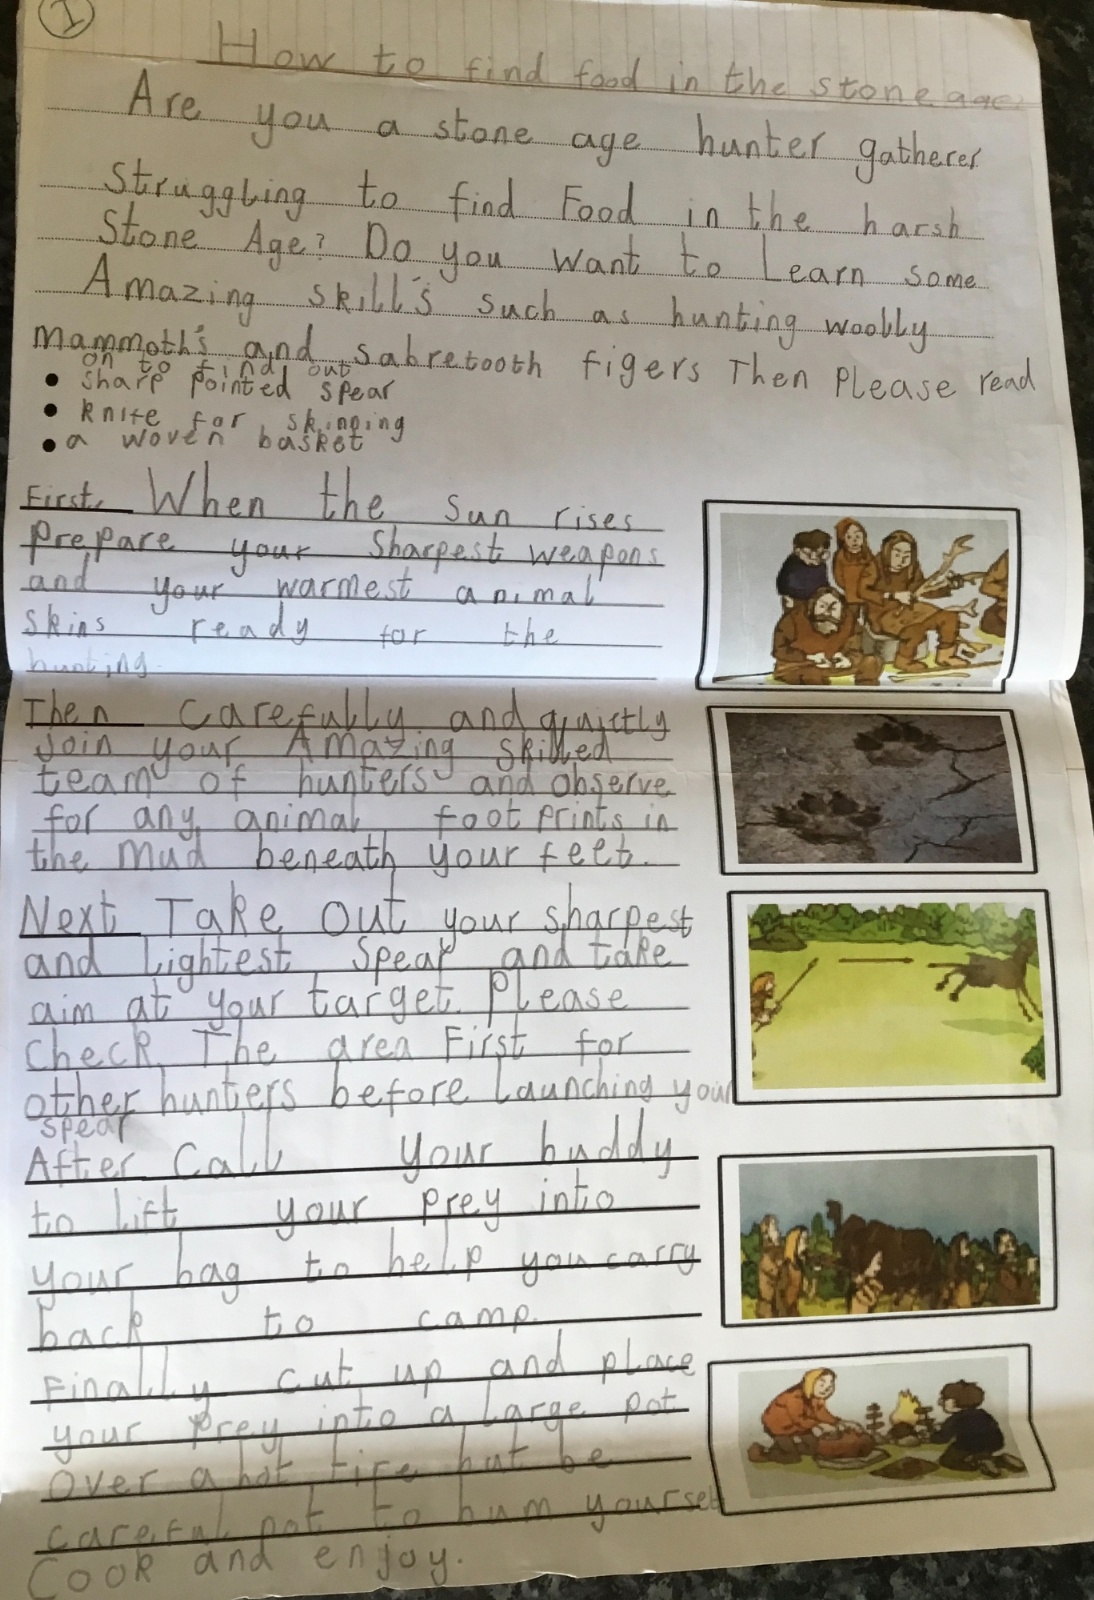 1
How to find food in the stone age?
Are you a stone age hunter gatherer
Struggling to find Food in the harsh
Stone Age? Do you want to Learn some
Amazing skill's such as hunting woolly
Mammoth's and sabretooth figers Then Please read
on to find out
• sharp pointed spear
• knife for skinning
• a woven basket
First, When the sun rises
prepare your sharpest weapons
and your warmest animal
skins ready for the
hunting.
Then carefully and quictly
join your Amazing skilled
team of hunters and observe
for any animal foot prints in
the mud beneath your feet.
Next Take Out your sharpest
and Lightest Spear and take
aim at your target. Please
Check The area First for
other hunters before Launching your
spear
After Call your buddy
to lift your prey into
your bag to help you carry
back to camp.
Finally cut up and place
your prey into a large pot
over a hot fire but be
careful not to burn yourself
Cook and enjoy.